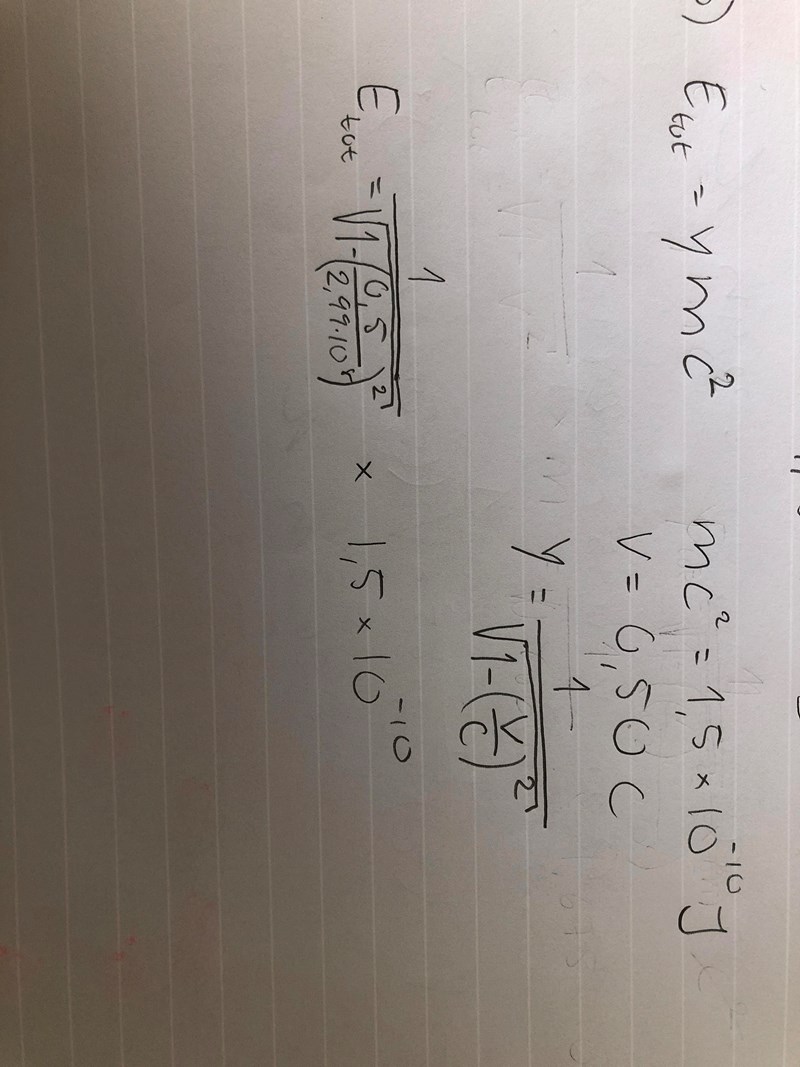 b) E_tot = γ m c²   mc² = 1,5 × 10⁻¹⁰ J
v = 0,50 c
γ = 1 / √(1 - (v/c)²)
E_tot = 1 / √(1 - (0,5 / 2,99·10⁸)²) × 1,5 × 10⁻¹⁰